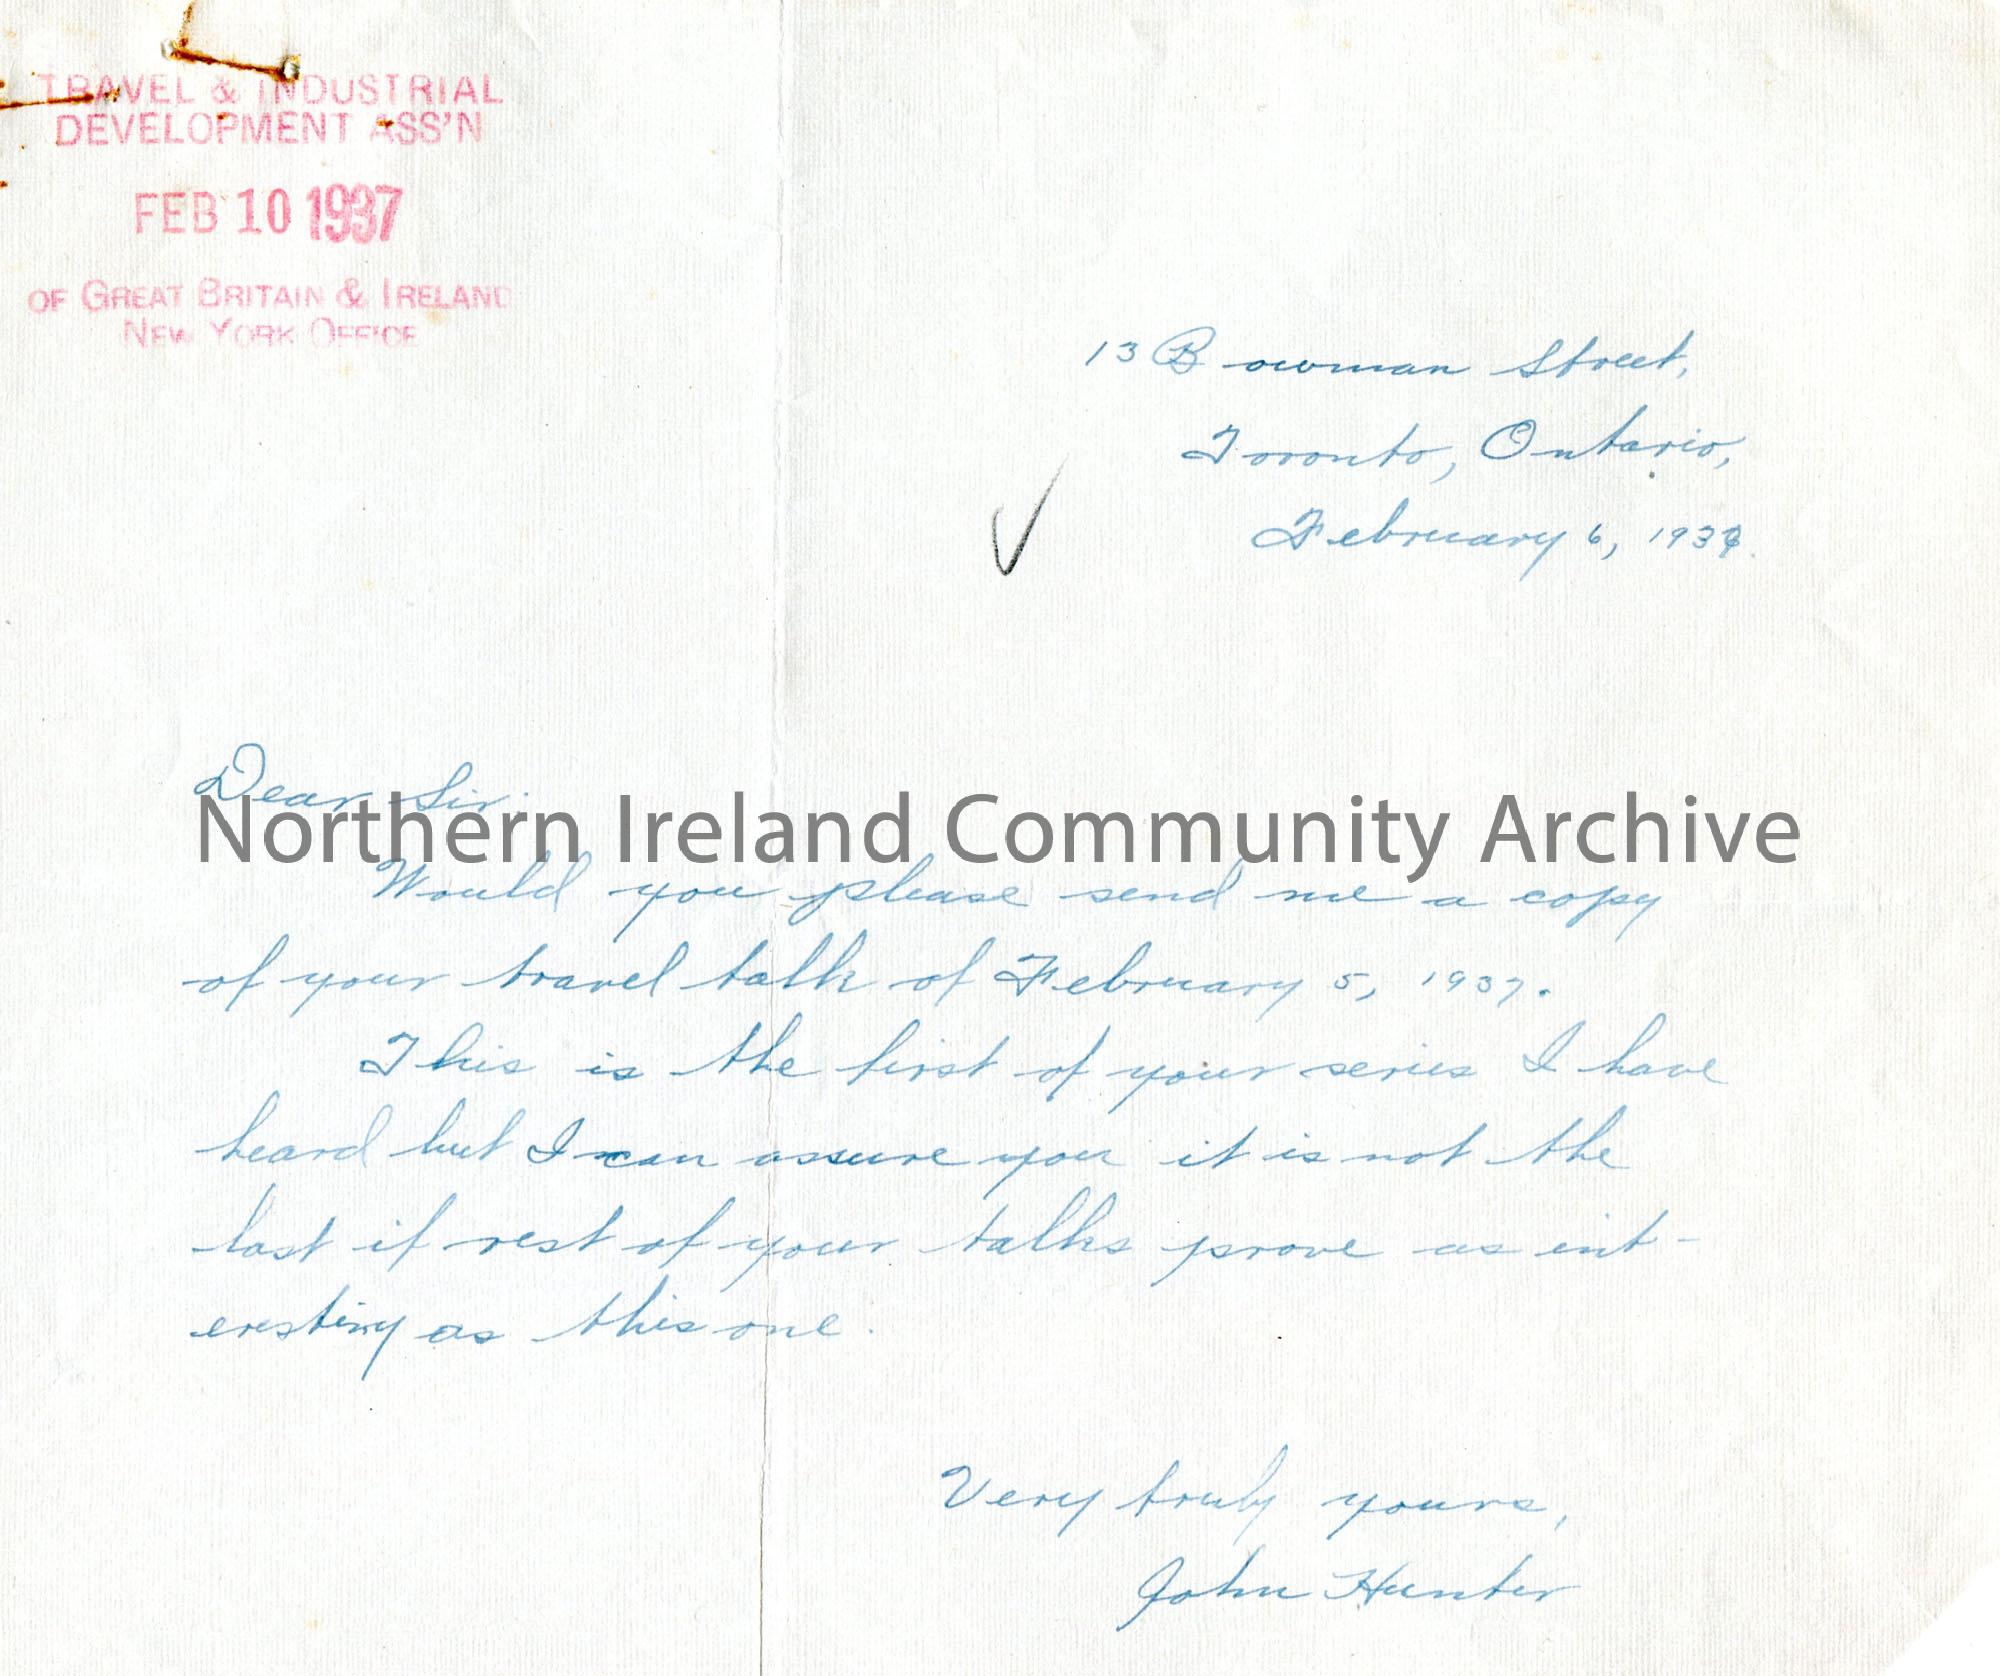 TRAVEL & INDUSTRIAL
DEVELOPMENT ASS'N
FEB 10 1937
OF GREAT BRITAIN & IRELAND
NEW YORK OFFICE
13 Bowman Street,
Toronto, Ontario,
February 6, 1937.
Dear Sir:
Northern Ireland Community Archive
Would you please send me a copy
of your travel talk of February 5, 1937.
This is the first of your series I have
heard but I can assure you it is not the
last if rest of your talks prove as int-
eresting as this one.
Very truly yours,
John Hunter